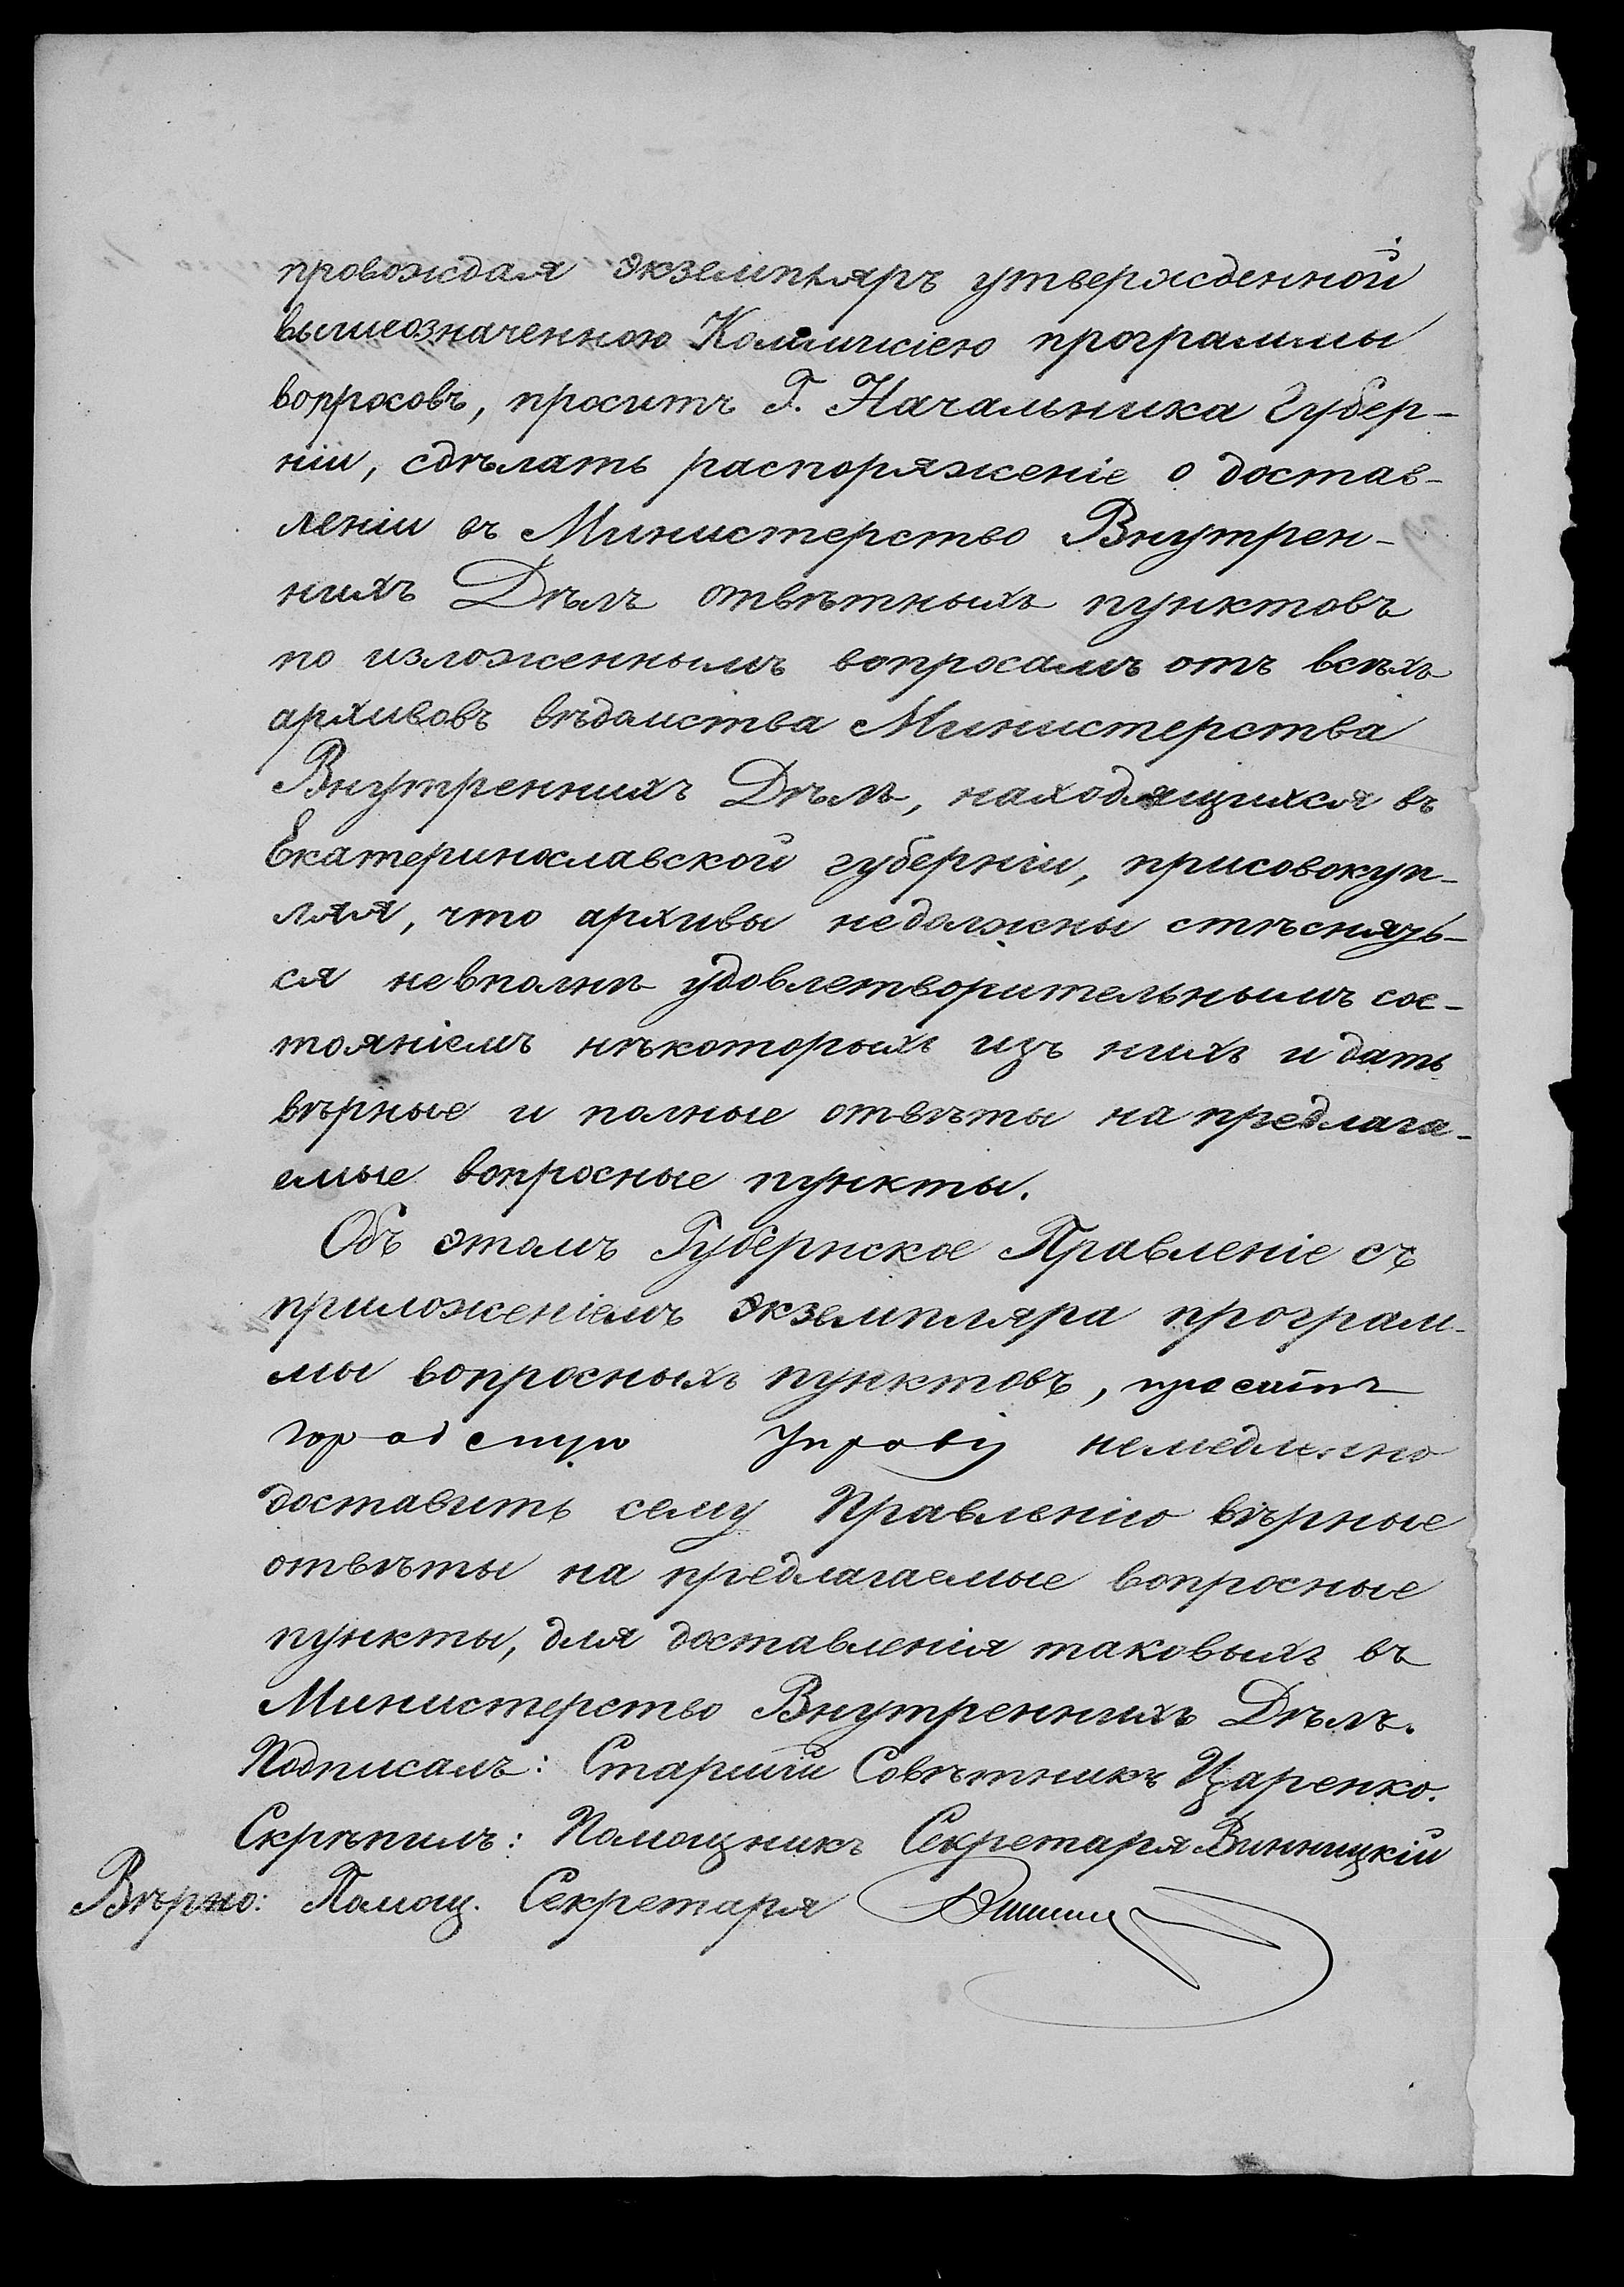 провождая экземпляръ утвержденной
вышеозначенною Коммисіею программы
вопросовъ, проситъ Г. Начальника Губер-
ніи, сдѣлать распоряженіе о достав-
леніи въ Министерство Внутрен-
нихъ Дѣлъ отвѣтныхъ пунктовъ
по изложеннымъ вопросамъ отъ всѣхъ
архивовъ вѣдомства Министерства
Внутреннихъ Дѣлъ, находящихся въ
Екатеринославской губерніи, присовокуп-
ляя, что архивы недолжны стѣснять-
ся невполнѣ удовлетворительнымъ сос-
тояніемъ нѣкоторыхъ изъ нихъ и дать
вѣрные и полные отвѣты на предлага-
емые вопросные пункты.
Объ этомъ Губернское Правленіе съ
приложеніемъ экземпляра програм-
мы вопросныхъ пунктовъ, проситъ
городскую Управу немедленно
доставить сему Правленію вѣрные
отвѣты на предлагаемые вопросные
пункты, для доставленія таковыхъ въ
Министерство Внутреннихъ Дѣлъ.
Подписалъ: Старшій Совѣтникъ Царенко.
Скрѣпилъ: Помощникъ Секретаря Винницкій
Вѣрно: Помощ. Секретаря